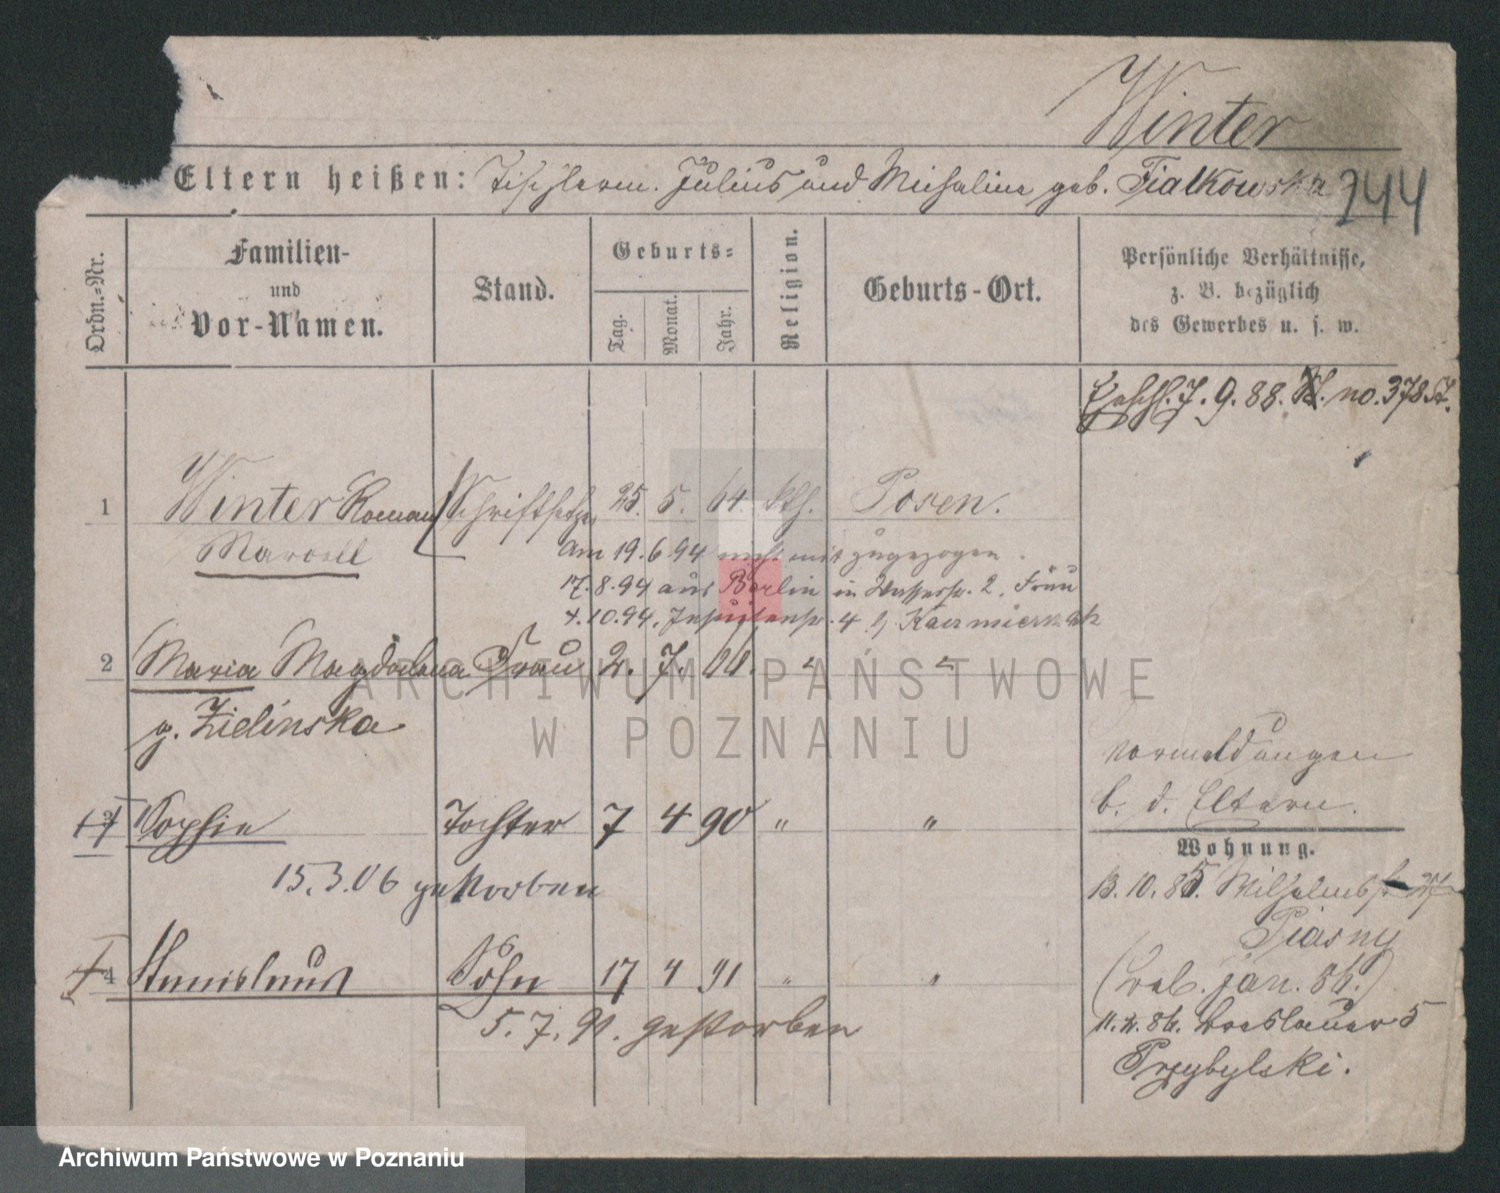 Winter
Eltern heißen: Tischlerm. Julius und Michalina geb. Fialkowska
744
Ordn.-Nr.
Familien-
und
Vor-Namen.
Stand.
Geburts-
Tag.
Monat.
Jahr.
Religion.
Geburts-Ort.
Persönliche Verhältnisse,
z. B. bezüglich
des Gewerbes u. s. w.
7. 9. 88. no. 378
1 Winter Roman Schriftsetzer 25. 5. 64. kth. Posen.
Marcell
Am 19.6.94 nicht mit zugezogen.
17.8.94 aus Berlin in Wasserstr. 2, Frau
4.10.94, Jesuitenstr. 4 b/ Kaczmierczak
2 Maria Magdalena Frau 2. 7. 〃 〃
g. Zielinska
Vormeldungen
b. d. Eltern.
3 Sophie Tochter 7 4 90 〃 〃
15.3.06 gestorben
Wohnung.
13.10.85. Wilhelmstr.
Piasny
4 Stanislaus Sohn 17 4 91 〃 〃
5.7.91. gestorben
jan. 86.)
86. Breslauer 5
Przybylski.
ARCHIWUM PAŃSTWOWE
W POZNANIU
Archiwum Państwowe w Poznaniu